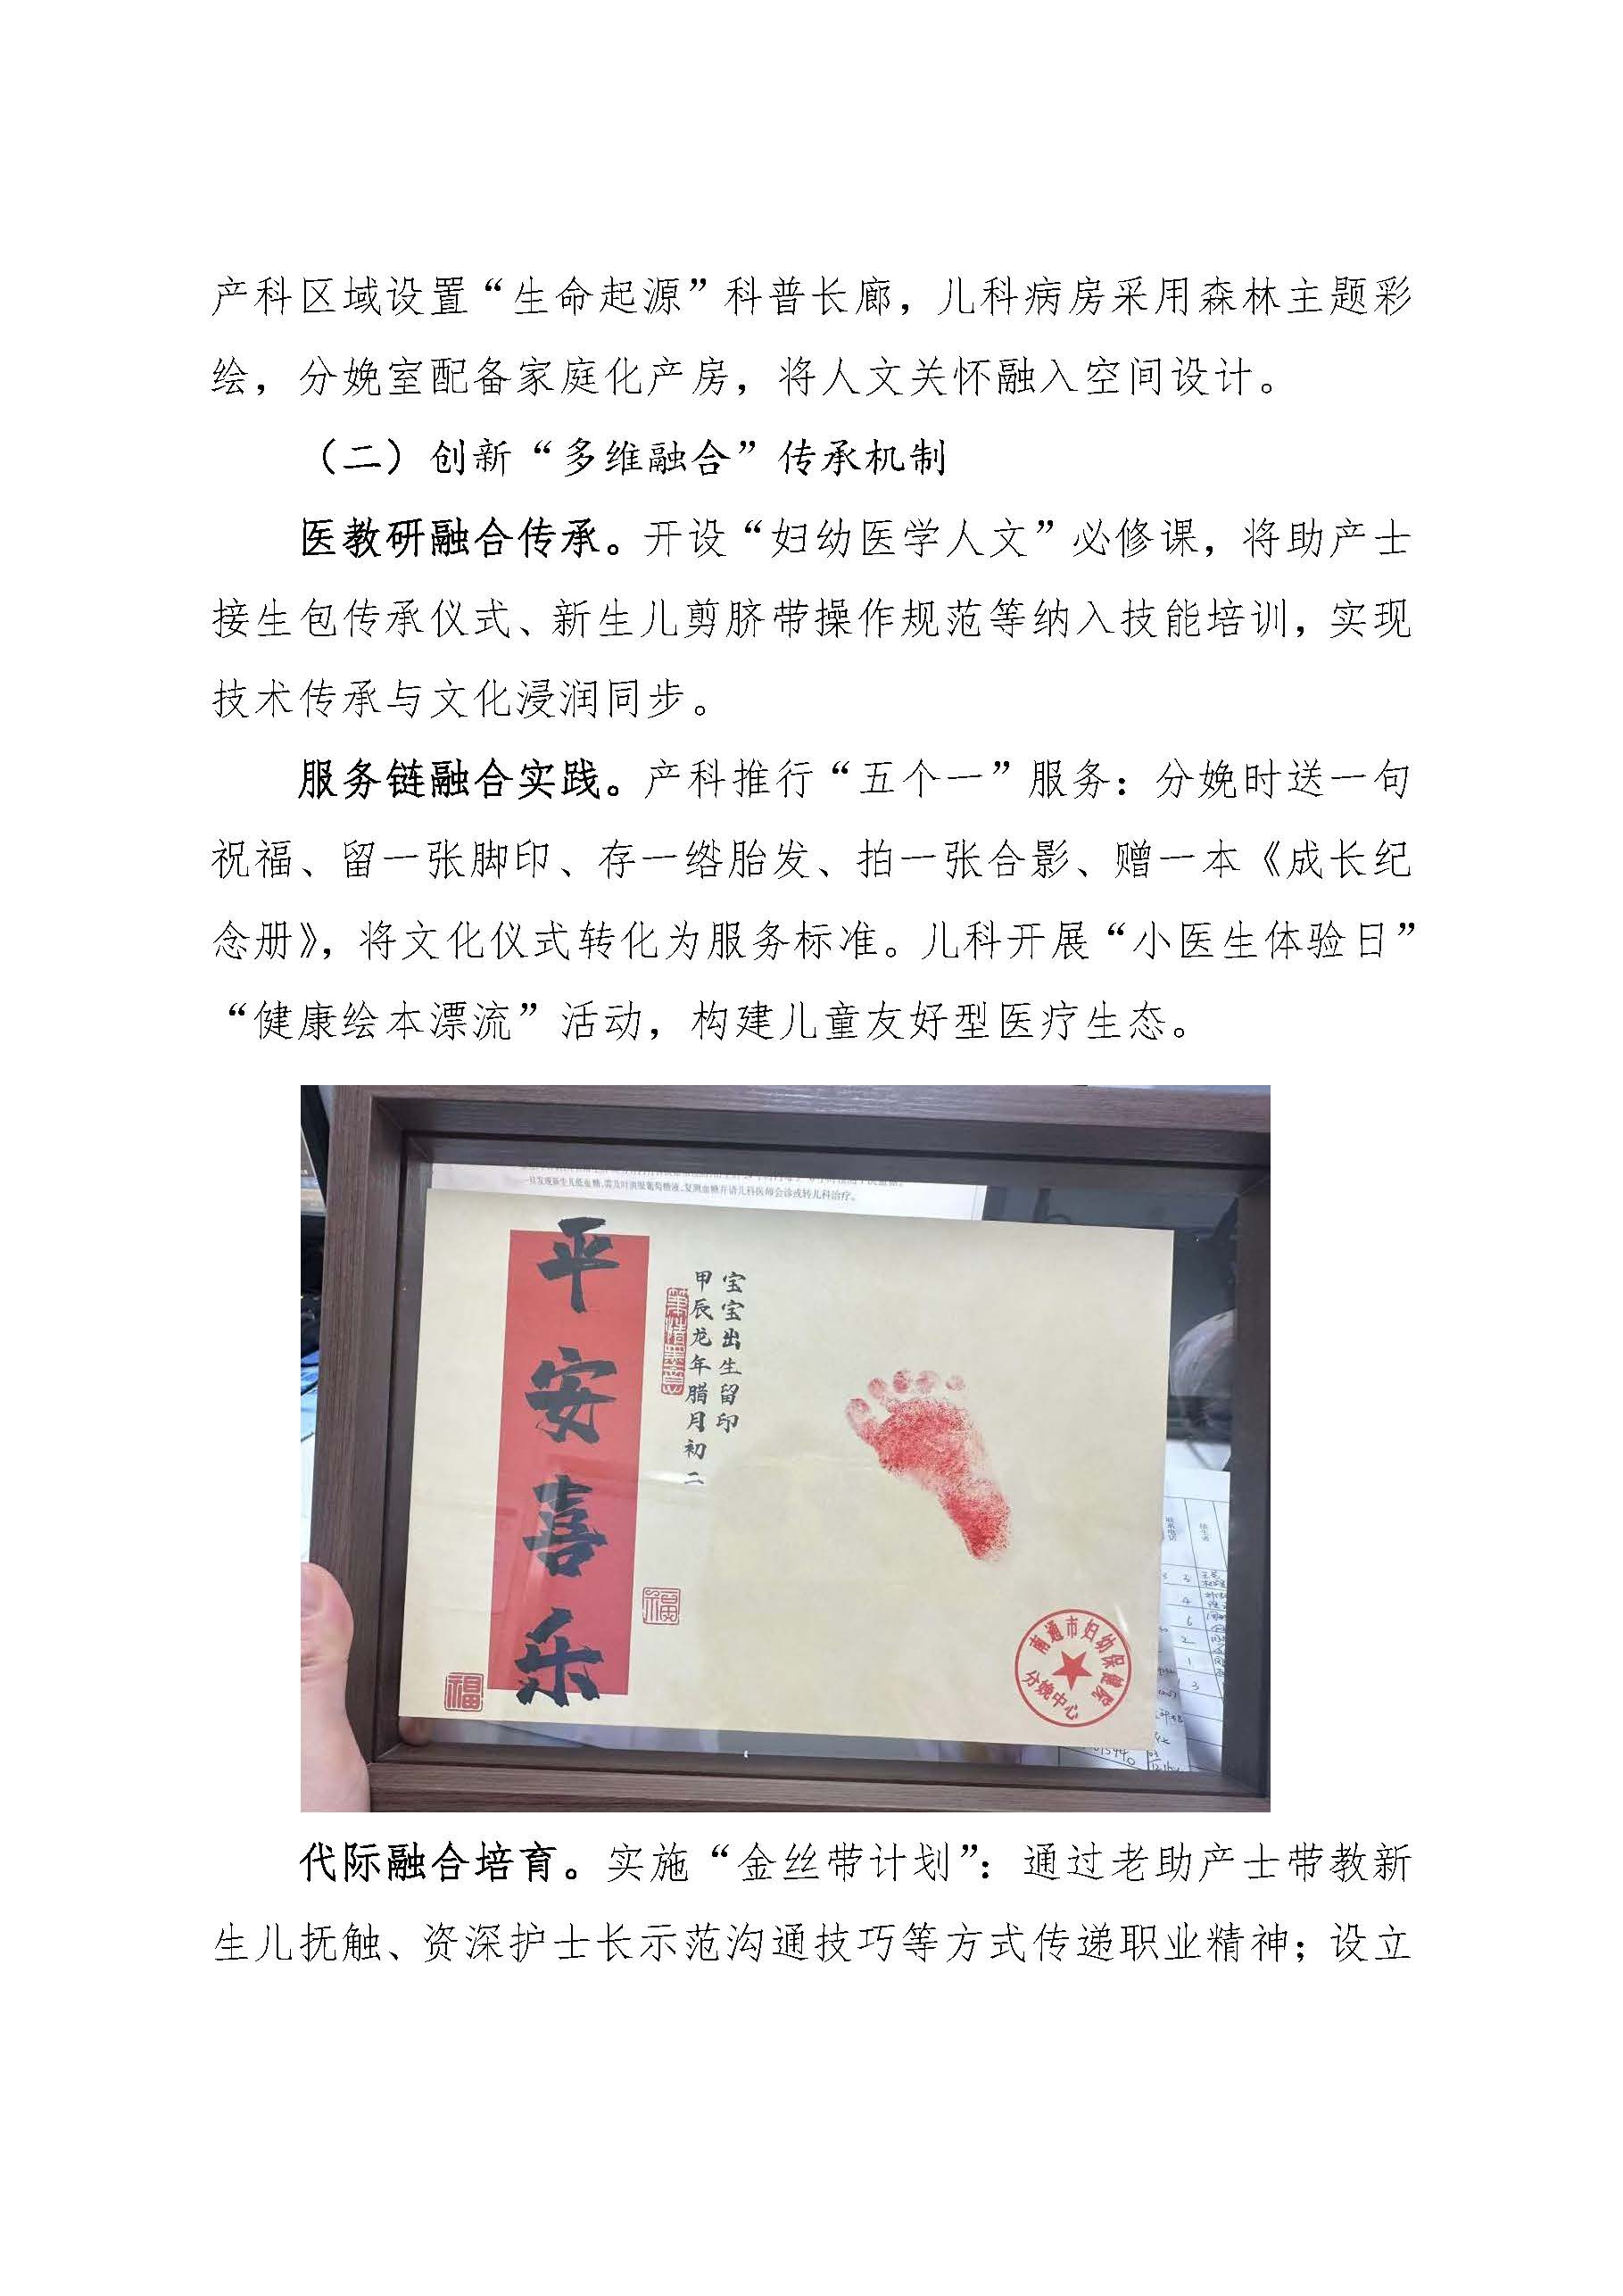 产科区域设置“生命起源”科普长廊，儿科病房采用森林主题彩
绘，分娩室配备家庭化产房，将人文关怀融入空间设计。
（二）创新“多维融合”传承机制
医教研融合传承。开设“妇幼医学人文”必修课，将助产士
接生包传承仪式、新生儿剪脐带操作规范等纳入技能培训，实现
技术传承与文化浸润同步。
服务链融合实践。产科推行“五个一”服务：分娩时送一句
祝福、留一张脚印、存一绺胎发、拍一张合影、赠一本《成长纪
念册》，将文化仪式转化为服务标准。儿科开展“小医生体验日”
“健康绘本漂流”活动，构建儿童友好型医疗生态。
一旦发现新生儿低血糖,需及时喂服葡萄糖液,复测血糖并请儿科医师会诊或转儿科治疗。
平安喜乐
宝宝出生留印
甲辰龙年腊月初二
福
福
南通市妇幼保健院
分娩中心
代际融合培育。实施“金丝带计划”：通过老助产士带教新
生儿抚触、资深护士长示范沟通技巧等方式传递职业精神；设立